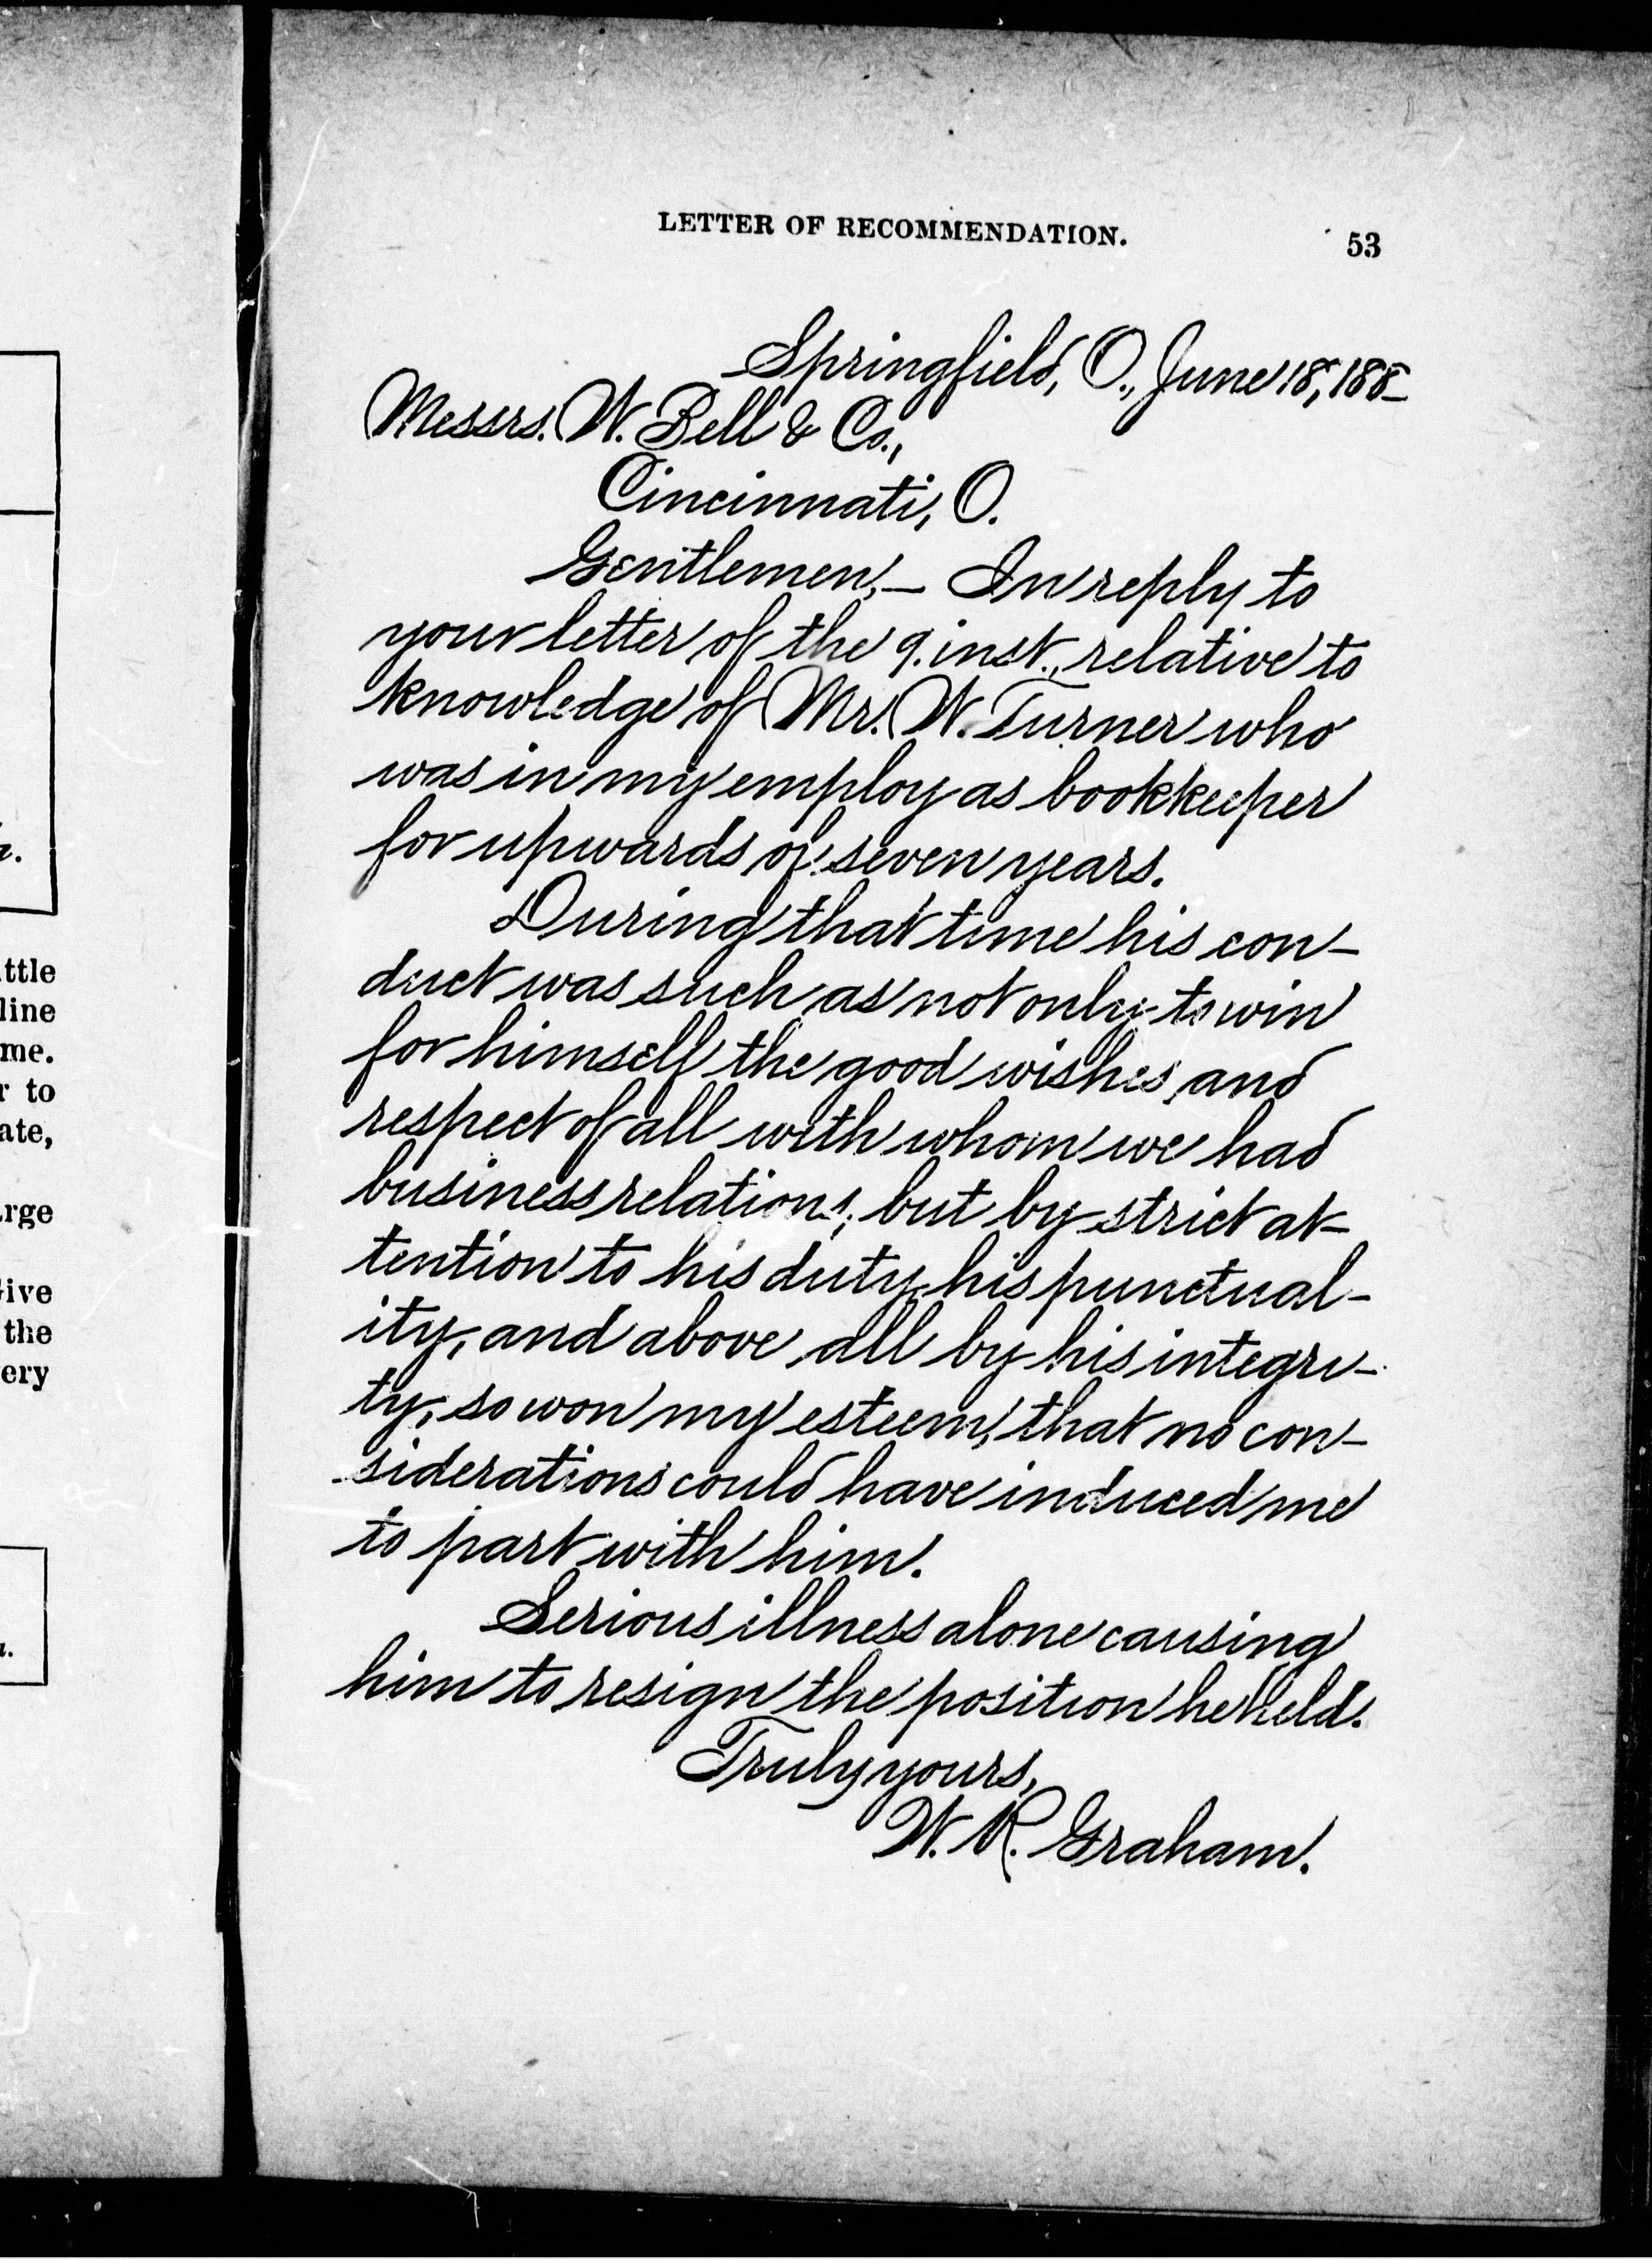 LETTER OF RECOMMENDATION.
53
Springfield, O., June 18, 188_
Messrs. W. Bell & Co.,
Cincinnati, O.
Gentlemen,— In reply to
your letter of the 9. inst., relative to
knowledge of Mr. W. Turner who
was in my employ as bookkeeper
for upwards of seven years.
During that time his con-
duct was such as not only to win
for himself the good wishes and
respect of all with whom we had
business relations; but by strict at-
tention to his duty, his punctual-
ity, and above all by his integri-
ty, so won my esteem, that no con-
siderations could have induced me
to part with him.
Serious illness alone causing
him to resign the position he held.
Truly yours,
W. R. Graham.
ttle
line
me.
r to
ate,
rge
ive
the
ery